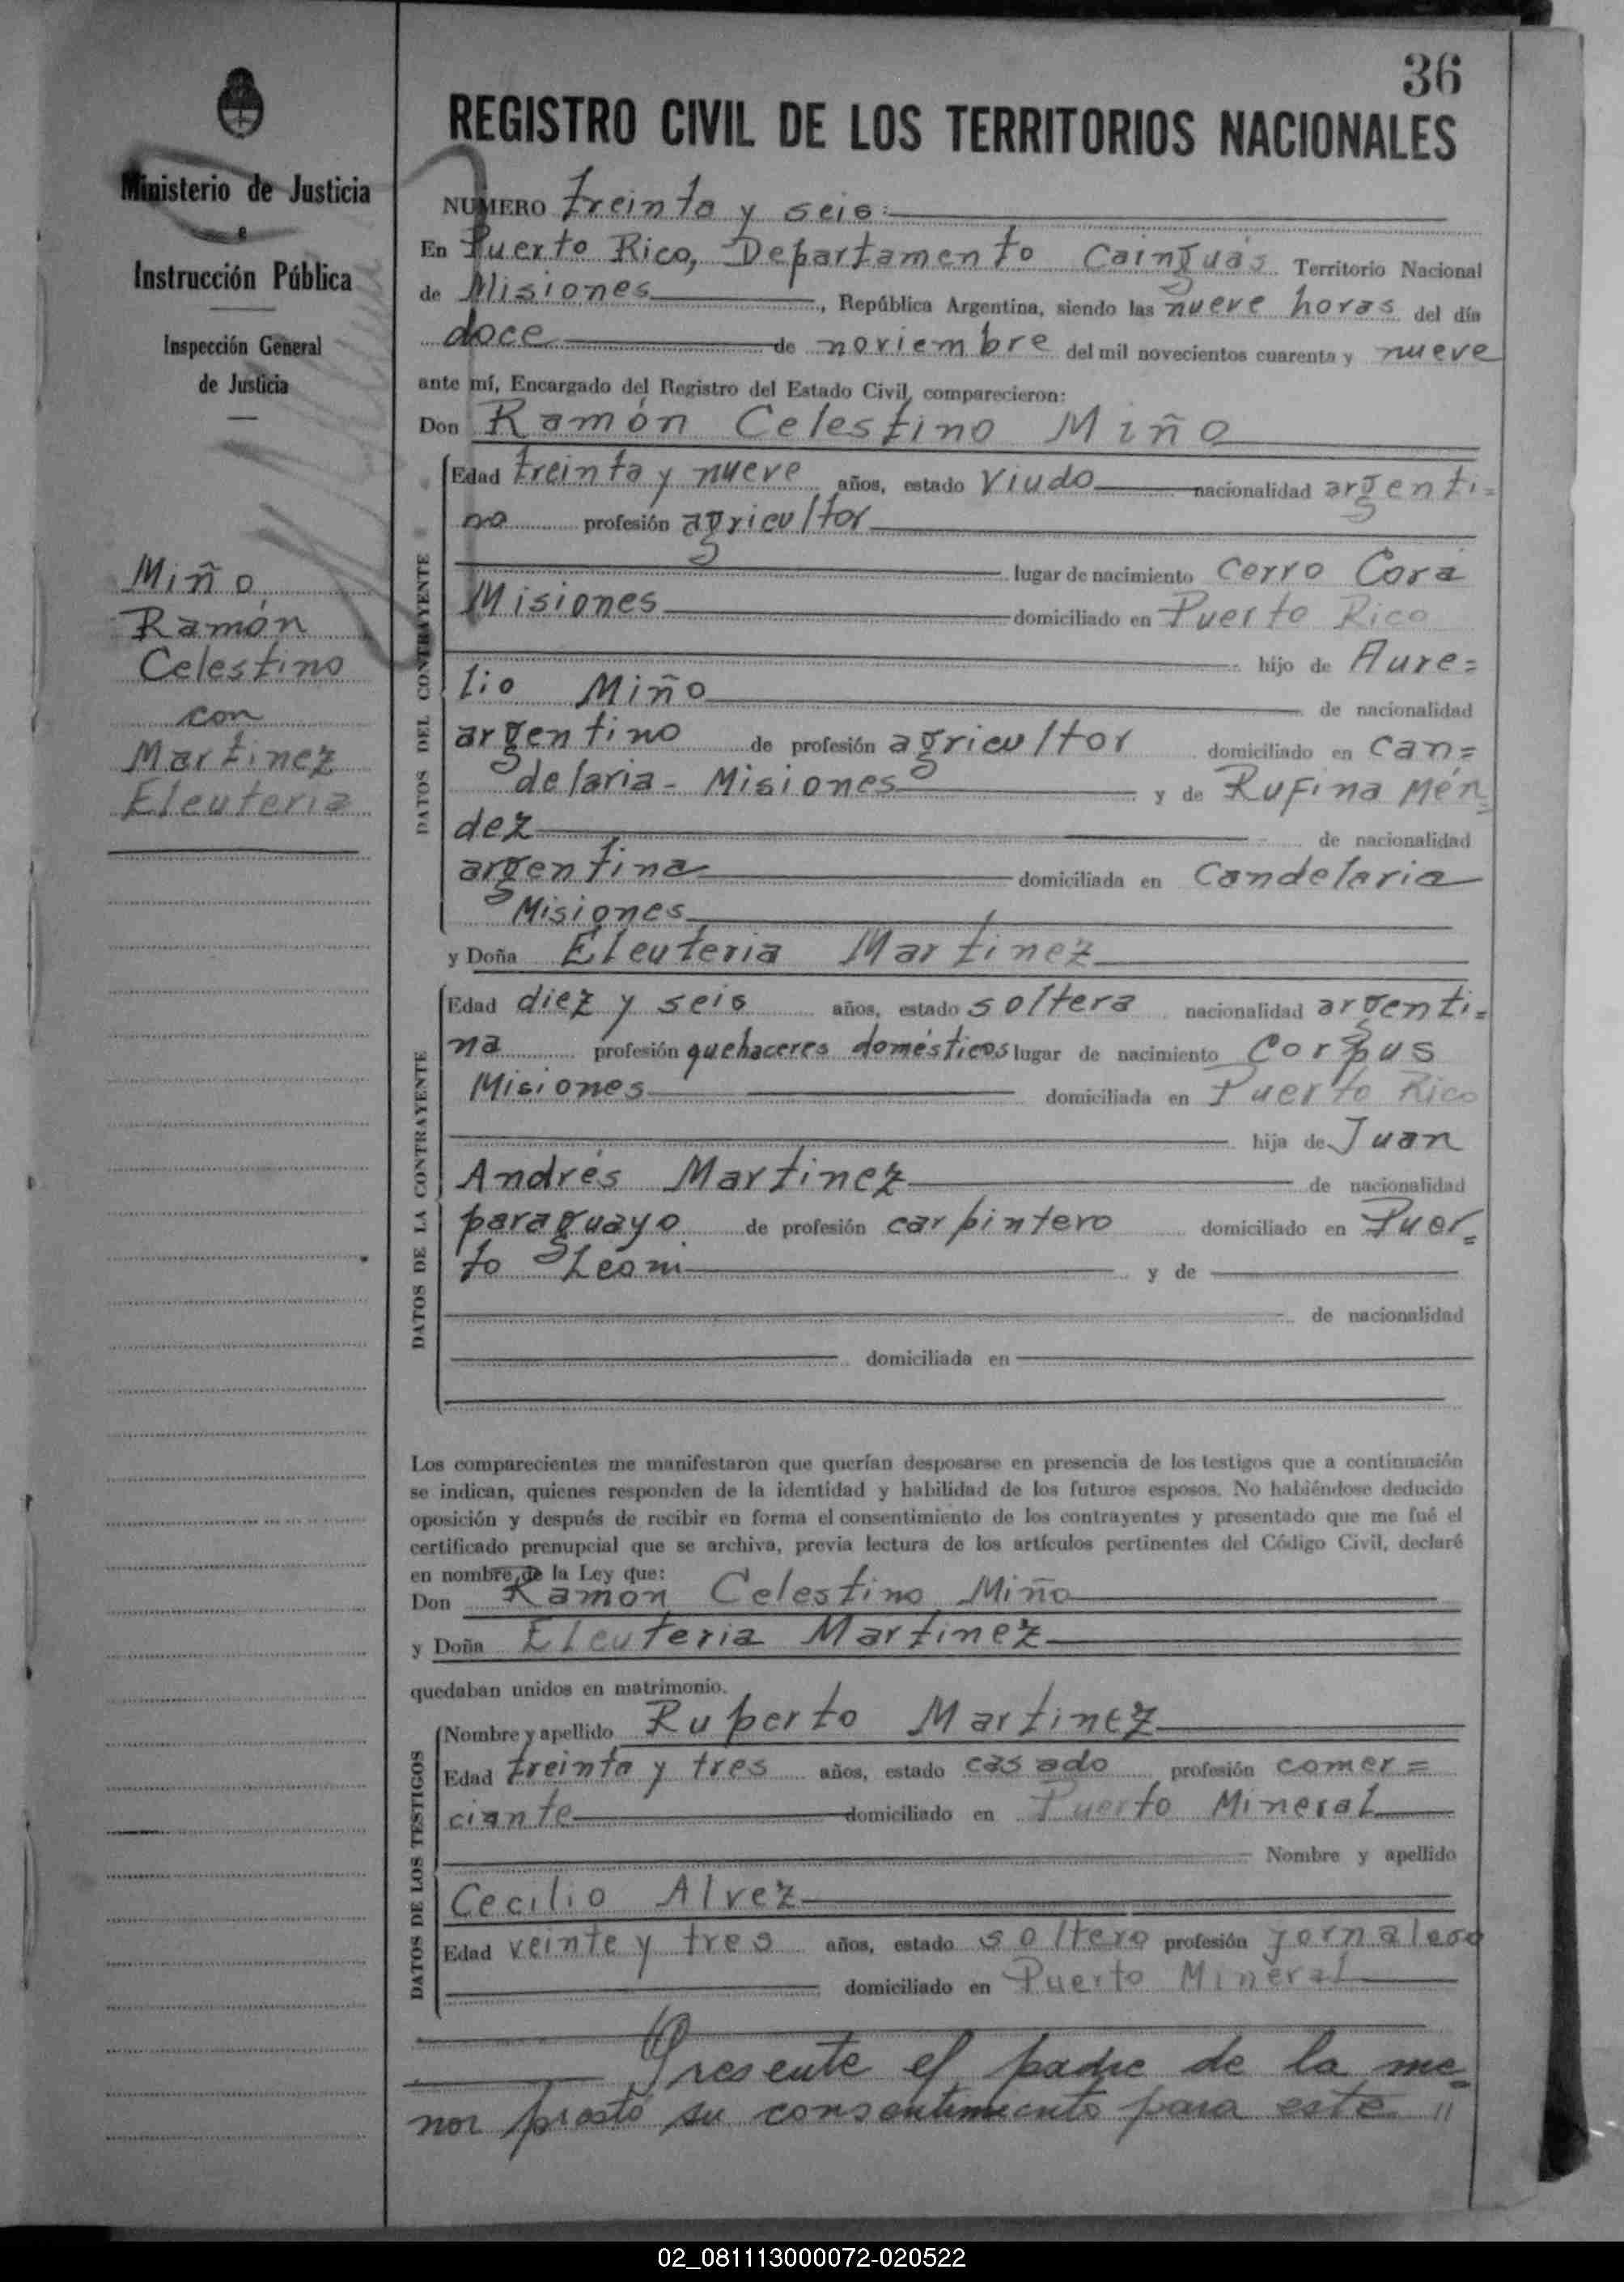 36
REGISTRO CIVIL DE LOS TERRITORIOS NACIONALES
Ministerio de Justicia
e
Instrucción Pública
Inspección General
de Justicia
Miño,
Ramón
Celestino
con
Martinez
Eleuteria
NUMERO treinta y seis:
En Puerto Rico, Departamento Cainguás Territorio Nacional
de Misiones, República Argentina, siendo las nueve horas del día
doce de noviembre del mil novecientos cuarenta y nueve
ante mí, Encargado del Registro del Estado Civil, comparecieron:
Don Ramón Celestino Miño
DATOS DEL CONTRAYENTE
Edad treinta y nueve años, estado viudo nacionalidad argenti=
no profesión agricultor
lugar de nacimiento Cerro Corá
Misiones domiciliado en Puerto Rico
hijo de Aure=
lio Miño de nacionalidad
argentino de profesión agricultor domiciliado en Can=
delaria - Misiones y de Rufina Mén=
dez de nacionalidad
argentina domiciliada en Candelaria
Misiones
y Doña Eleuteria Martinez
DATOS DE LA CONTRAYENTE
Edad diez y seis años, estado soltera nacionalidad argenti=
na profesión quehaceres domésticos lugar de nacimiento Corpus
Misiones domiciliada en Puerto Rico
hija de Juan
Andrés Martinez de nacionalidad
paraguayo de profesión carpintero domiciliado en Puer=
to Leoni y de
de nacionalidad
domiciliada en
Los comparecientes me manifestaron que querían desposarse en presencia de los testigos que a continuación
se indican, quienes responden de la identidad y habilidad de los futuros esposos. No habiéndose deducido
oposición y después de recibir en forma el consentimiento de los contrayentes y presentado que me fué el
certificado prenupcial que se archiva, previa lectura de los artículos pertinentes del Código Civil, declaré
en nombre de la Ley que:
Don Ramon Celestino Miño
y Doña Eleuteria Martinez
quedaban unidos en matrimonio.
DATOS DE LOS TESTIGOS
Nombre y apellido Ruperto Martinez
Edad treinta y tres años, estado casado profesión comer=
ciante domiciliado en Puerto Mineral
Nombre y apellido
Cecilio Alvez
Edad veinte y tres años, estado soltero profesión jornalero
domiciliado en Puerto Mineral
Presente el padre de la me=
nor prestó su consentimiento para este "
02_081113000072-020522